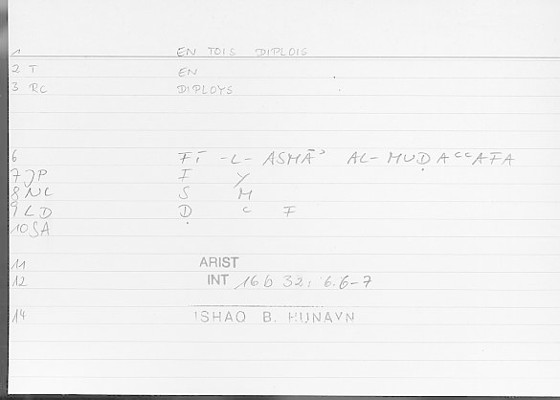 1 EN TOIS DIPLOIS
2 T EN
3 RC DIPLOYS
6 FĪ -L- ASMĀʾ AL- MUḌAʿʿAFA
7 JP I Y
8 NL S M
9 LD Ḍ ʿ F
10 SA
11 ARIST
12 INT 16b 32: 6.6-7
14 ISHAO B. HUNAYN